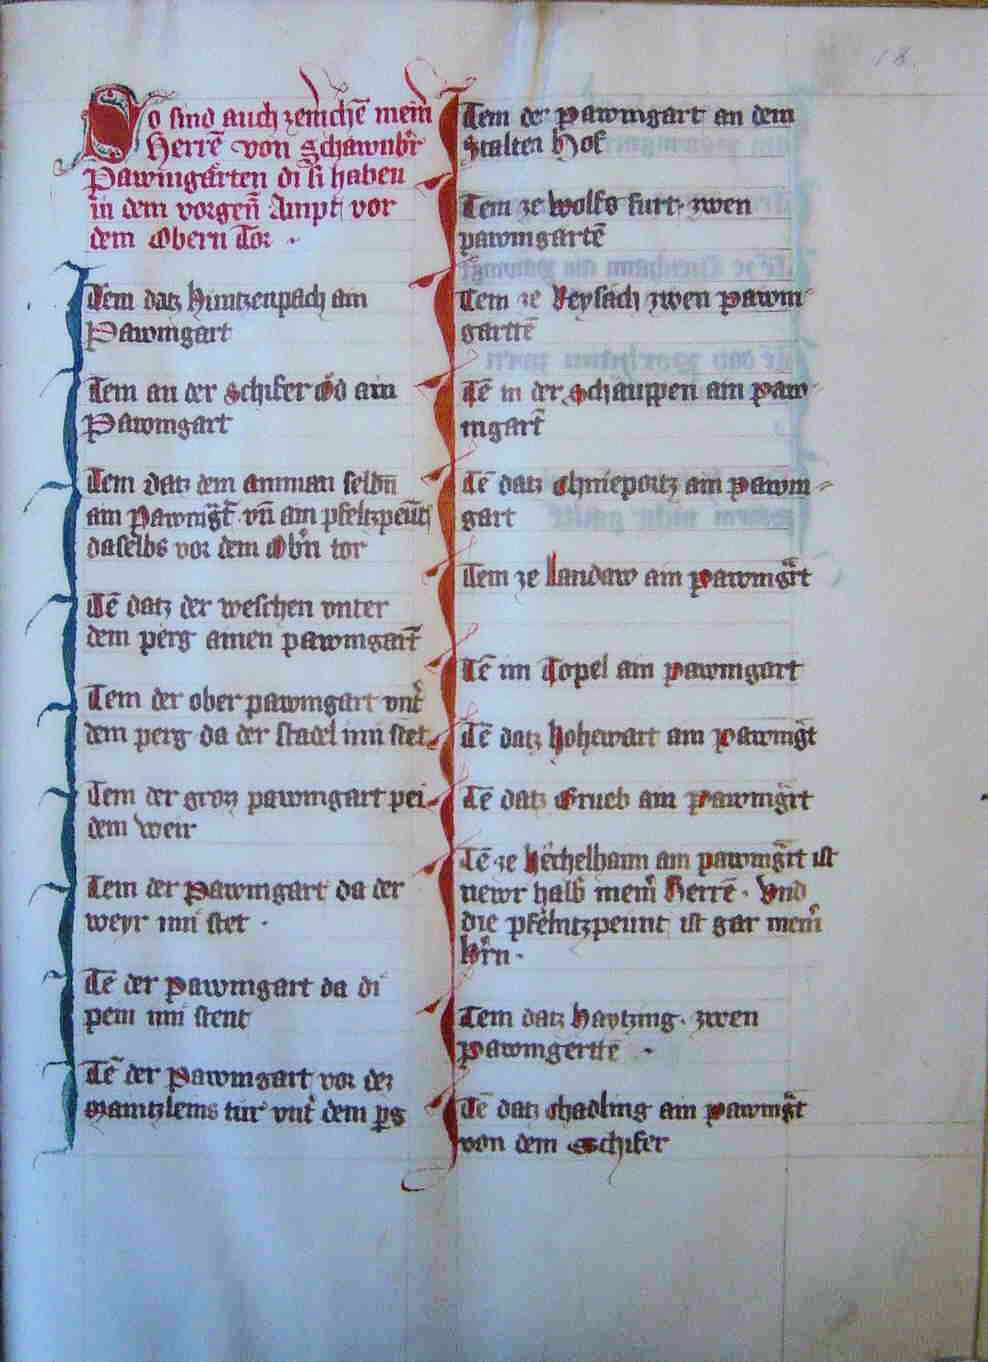 18.
So sind auch zemchē meiñ
Herrē von Schawnb̄r
Pawmgärten di si haben
in dem vorgen̄ Ampt vor
dem Obern Tor ·
Item datz hintzenpach ain
Pawmgart
Item an der Schifer Öd ain
Pawmgart
Item datz dem amman selbn̄
ain Pawmg̃t vn̄ ain pfeltzpeūt
daselbs vor dem Obn̄ tor
Itē datz der weschen vnter
dem perg ainen pawmgart̄
Item der ober pawmgart vnt̄
dem perg da der stadel inn stet
Item der groz pawmgart pei
dem weir
Item der Pawmgart da der
weyr inn stet ·
Itē der Pawmgart da di
pein inn stent
Itē der Pawmgart vor dez
Maintzleins tür vnt̄ dem pg
Item der Pawmgart an dem
Stalten Hof
Item ze Wolfs furt · zwen
pawmgartē
Item ze Reysach zwen pawm
gartē
Itē in der Schauppen ain paw
mgart̄
Itē datz Chniepoitz ain pawm
gart
Item ze Landaw ain pawmg̃rt
Itē im Topel ain pawmgart
Itē datz Hohewart ain pawmg̃t
Itē datz Grueb ain Pawmg̃rt
Itē ze Hechelhaim ain pawmg̃rt ist
newr halb meinr̄ Herrē · Vnd
die pfeltzpeunt ist gar meinr̄
hr̄n ·
Item datz Haytzing · zwen
Pawmgerttē ·
Itē datz Chadling ain pawmg̃t
von dem Schifer